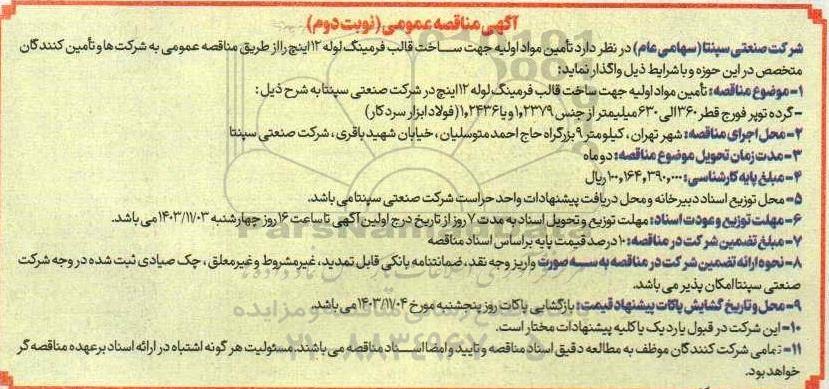 آگهی مناقصه عمومی (نوبت دوم)
شرکت صنعتی سپنتا (سهامی عام) در نظر دارد تأمین مواد اولیه جهت ساخت قالب فرمینگ لوله ۱۲ اینچ را از طریق مناقصه عمومی به شرکت ها و تأمین کنندگان
متخصص در این حوزه و با شرایط ذیل واگذار نماید:
۱- موضوع مناقصه: تأمین مواد اولیه جهت ساخت قالب فرمینگ لوله ۱۲ اینچ در شرکت صنعتی سپنتا به شرح ذیل:
- گرده توپر فورج قطر ۳۶۰ الی ۶۳۰ میلیمتر از جنس ۱٫۲۳۷۹ و یا ۱٫۲۴۳۶ (فولاد ابزار سردکار)
۲- محل اجرای مناقصه: شهر تهران، کیلومتر ۹ بزرگراه حاج احمد متوسلیان، خیابان شهید باقری، شرکت صنعتی سپنتا
۳- مدت زمان تحویل موضوع مناقصه: دو ماه
۴- مبلغ پایه کارشناسی: ۱۰۰,۱۶۴,۳۹۰,۰۰۰ ریال
۵- محل توزیع اسناد دبیرخانه و محل دریافت پیشنهادات واحد حراست شرکت صنعتی سپنتا می باشد.
۶- مهلت توزیع و عودت اسناد: مهلت توزیع و تحویل اسناد به مدت ۷ روز از تاریخ درج اولین آگهی تا ساعت ۱۶ روز چهارشنبه ۱۴۰۳/۱۱/۰۳ می باشد.
۷- مبلغ تضمین شرکت در مناقصه: ۱۰ درصد قیمت پایه بر اساس اسناد مناقصه
۸- نحوه ارائه تضمین شرکت در مناقصه به سه صورت واریز وجه نقد، ضمانتنامه بانکی قابل تمدید، غیر مشروط و غیر معلق، چک صیادی ثبت شده در وجه شرکت
صنعتی سپنتا امکان پذیر می باشد.
۹- محل و تاریخ گشایش پاکات پیشنهاد قیمت: بازگشایی پاکات روز پنجشنبه مورخ ۱۴۰۳/۱۱/۰۴ می باشد.
۱۰- این شرکت در قبول یا رد یک یا کلیه پیشنهادات مختار است.
۱۱- تمامی شرکت کنندگان موظف به مطالعه دقیق اسناد مناقصه و تایید و امضا اسناد مناقصه می باشند. مسئولیت هر گونه اشتباه در ارائه اسناد بر عهده مناقصه گر
خواهد بود.